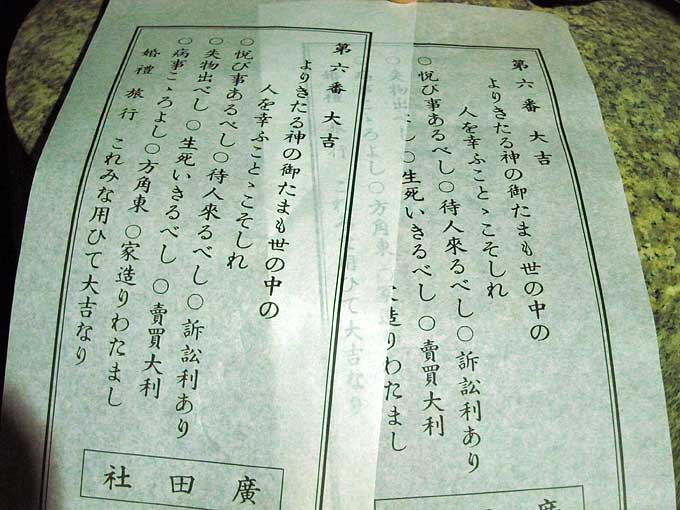 第六番 大吉
よりきたる神の御たまも世の中の
人を幸ふことゝこそしれ
○悦び事あるべし○待人來るべし○訴訟利あり
○失物出べし ○生死いきるべし ○賣買大利
ゝろよし○方角東 ○家造りわたまし
ひて大吉なり
廣田
第六番 大吉
よりきたる神の御たまも世の中の
人を幸ふことゝこそしれ
○悦び事あるべし○待人來るべし○訴訟利あり
○失物出べし ○生死いきるべし ○賣買大利
○病事こゝろよし○方角東 ○家造りわたまし
婚禮 旅行 これみな用ひて大吉なり
廣田社